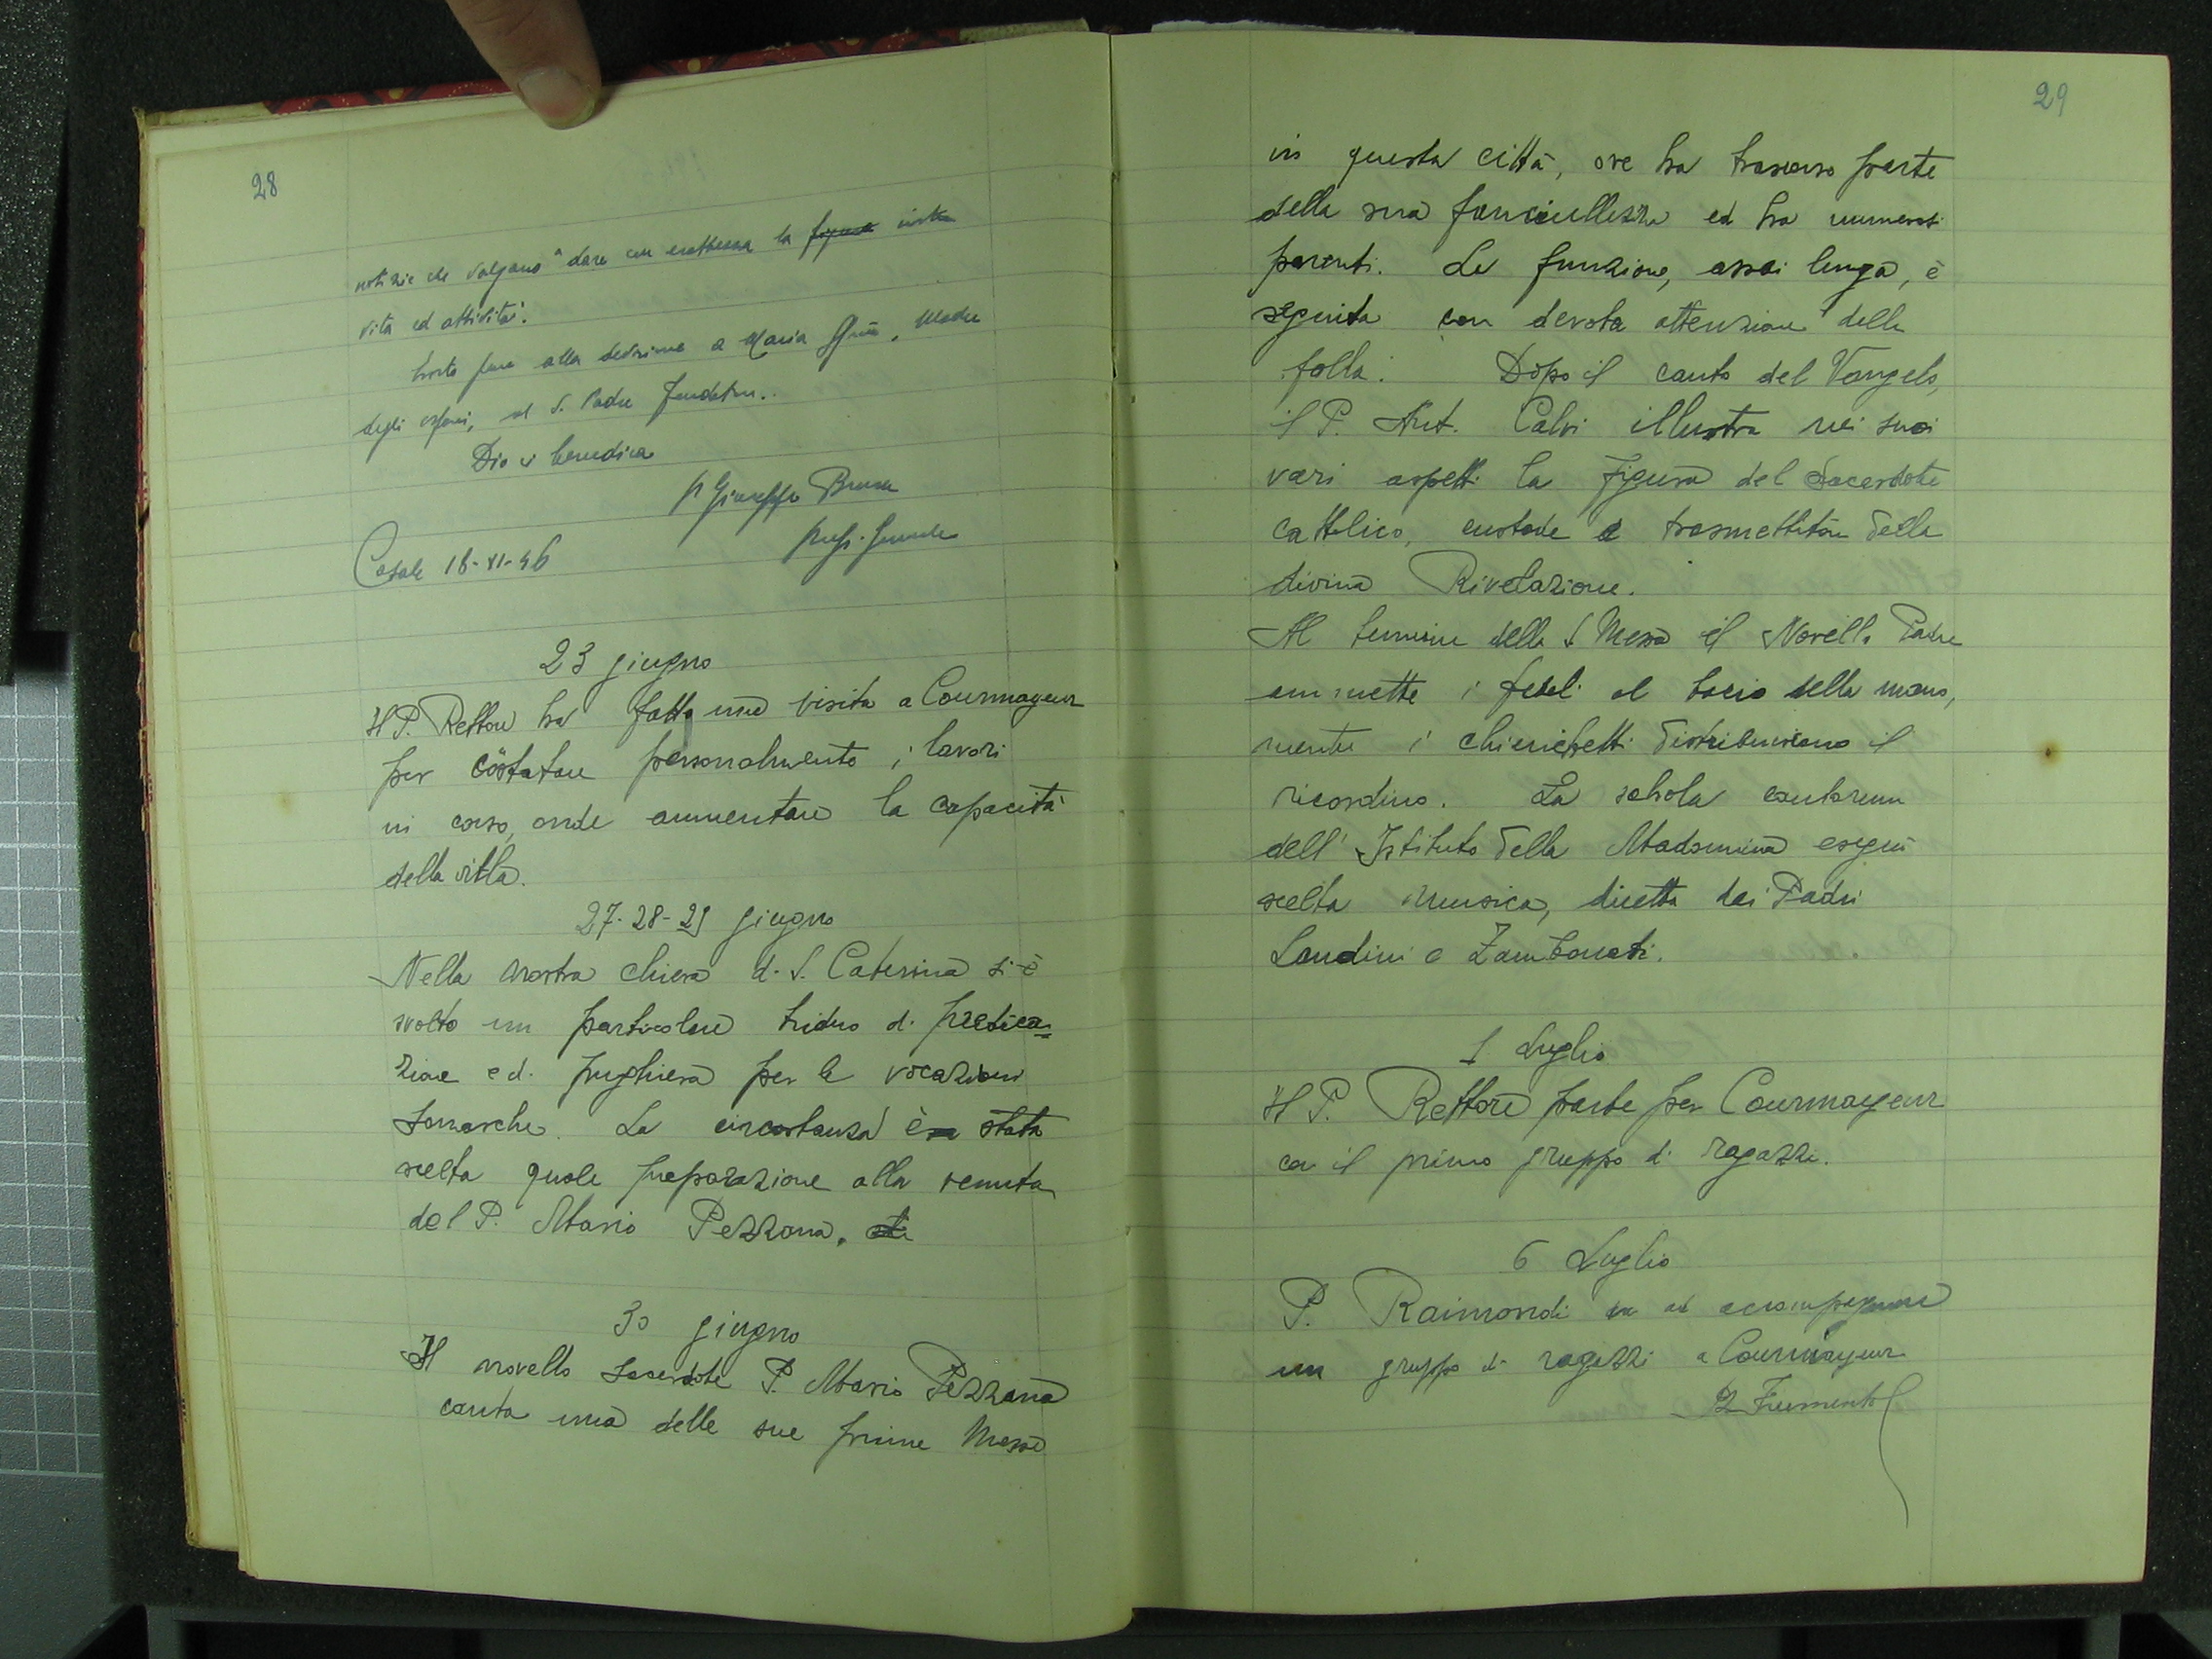 28
notizie che valgano a dare con esattezza la figura vostra
vita ed attività.
Esorto pure alla devozione a Maria SS.ma, Madre
degli orfani, al S. Padre fondatore.
Dio ci benedica
p Giuseppe Brusa
prep. generale
Casale 18-VI-46
23 giugno
Il P. Rettore ha fatto una visita a Courmayeur
per costatare personalmente i lavori
in corso, onde aumentare la capacità
della villa.
27-28-29 giugno
Nella nostra chiesa di S. Caterina si è
svolto un particolare triduo di predica=
zione e di preghiera per le vocazioni
somasche. La circostanza è stata
scelta quale preparazione alla venuta
del P. Mario Pezzana.
30 giugno
Il novello sacerdote P. Mario Pezzana
canta una delle sue prime Messe
29
in questa città, ove ha trascorso parte
della sua fanciullezza ed ha numerosi
parenti. La funzione, assai lunga, è
seguita con devota attenzione dalla
folla. Dopo il canto del Vangelo,
il P. Ant. Calvi illustra nei suoi
vari aspetti la figura del Sacerdote
cattolico, custode e trasmettitore della
divina Rivelazione.
Al termine della S Messa il Novello Padre
ammette i fedeli al bacio della mano,
mentre i chierichetti distribuiscono il
ricordino. La schola cantorum
dell'Istituto della Madonnina eseguì
scelta musica, diretta dai Padri
Landini e Zambonati.
1 Luglio
Il P. Rettore parte per Courmayeur
con il primo gruppo di ragazzi.
6 Luglio
P. Raimondi va ad accompagnare
un gruppo di ragazzi a Courmayeur
P. Frumento